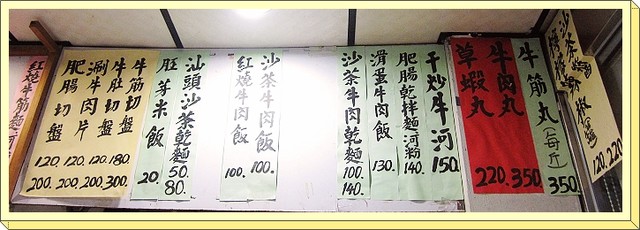 沙茶
120. 220
牛筋丸(每斤) 350.
牛肉丸 350.
草蝦丸 220.
干炒牛河 150.
肥腸乾拌麵河粉 140.
滑蛋牛肉飯 130.
沙茶牛肉乾麵 100. 140.
沙茶牛肉飯 100.
紅燒牛肉飯 100.
汕頭沙茶乾麵 50. 80.
胚芽米飯 20.
牛筋切盤 180. 300.
牛肚切盤 120. 200.
涮牛肉片 120. 200.
肥腸切盤 120. 200.
紅燒牛筋麵